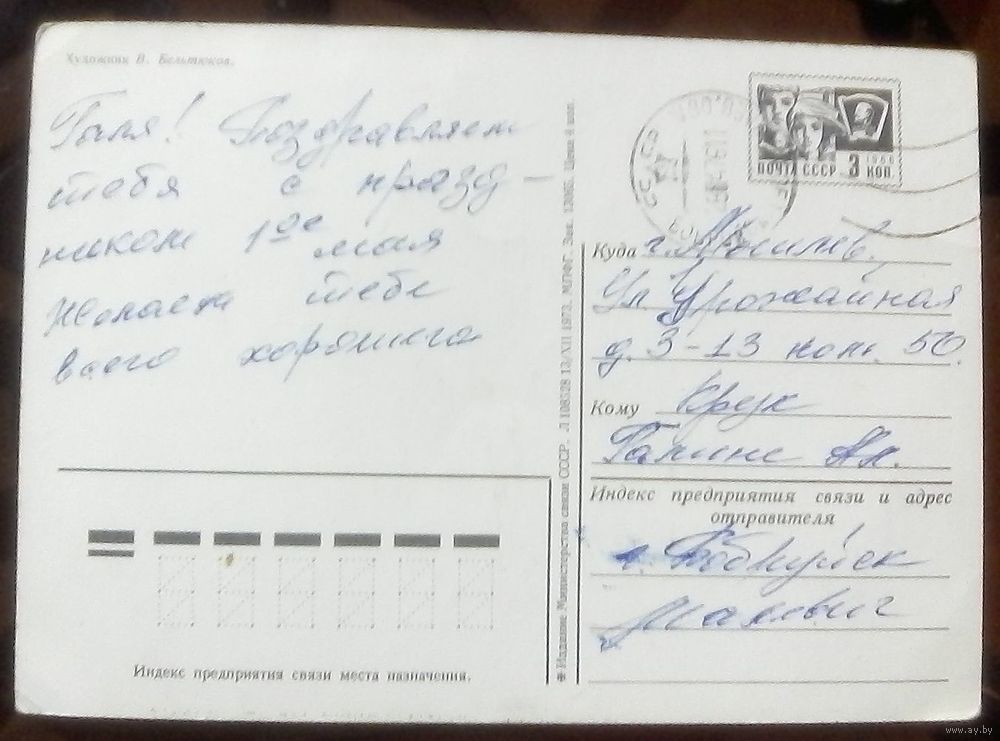 Художник В. Бельтюков.
Галя! Поздравляем
тебя с празд-
ником 1ое мая
Желаем тебе
всего хорошего
Индекс предприятия связи места назначения.
Издание Министерства связи СССР. Л 108528 13/XII 1973. МПФГ. Зак. 13085. Цена 4 коп.
ПОЧТА СССР 3 КОП.
1966
СССР
Куда г. Могилев,
Ул Урожайная
д. 3-13 ком. 50.
Кому Крук
Галине Ал.
Индекс предприятия связи и адрес
отправителя
г. Бобруйск
www.ay.by